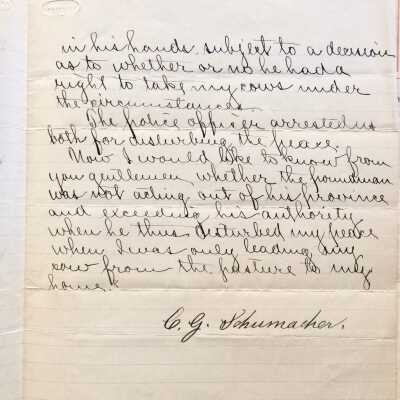 in his hands subject to a decision
as to whether or no he had a
right to take my cows under
the circumstances.
The police officer arrested us
both for disturbing the peace.
Now I would like to know from
you gentlemen whether the poundman
was not acting out of his province
and exceeding his authority
when he thus disturbed my peace
when I was only leading my
cow from the pasture to my
home."
C. G. Schumacher.